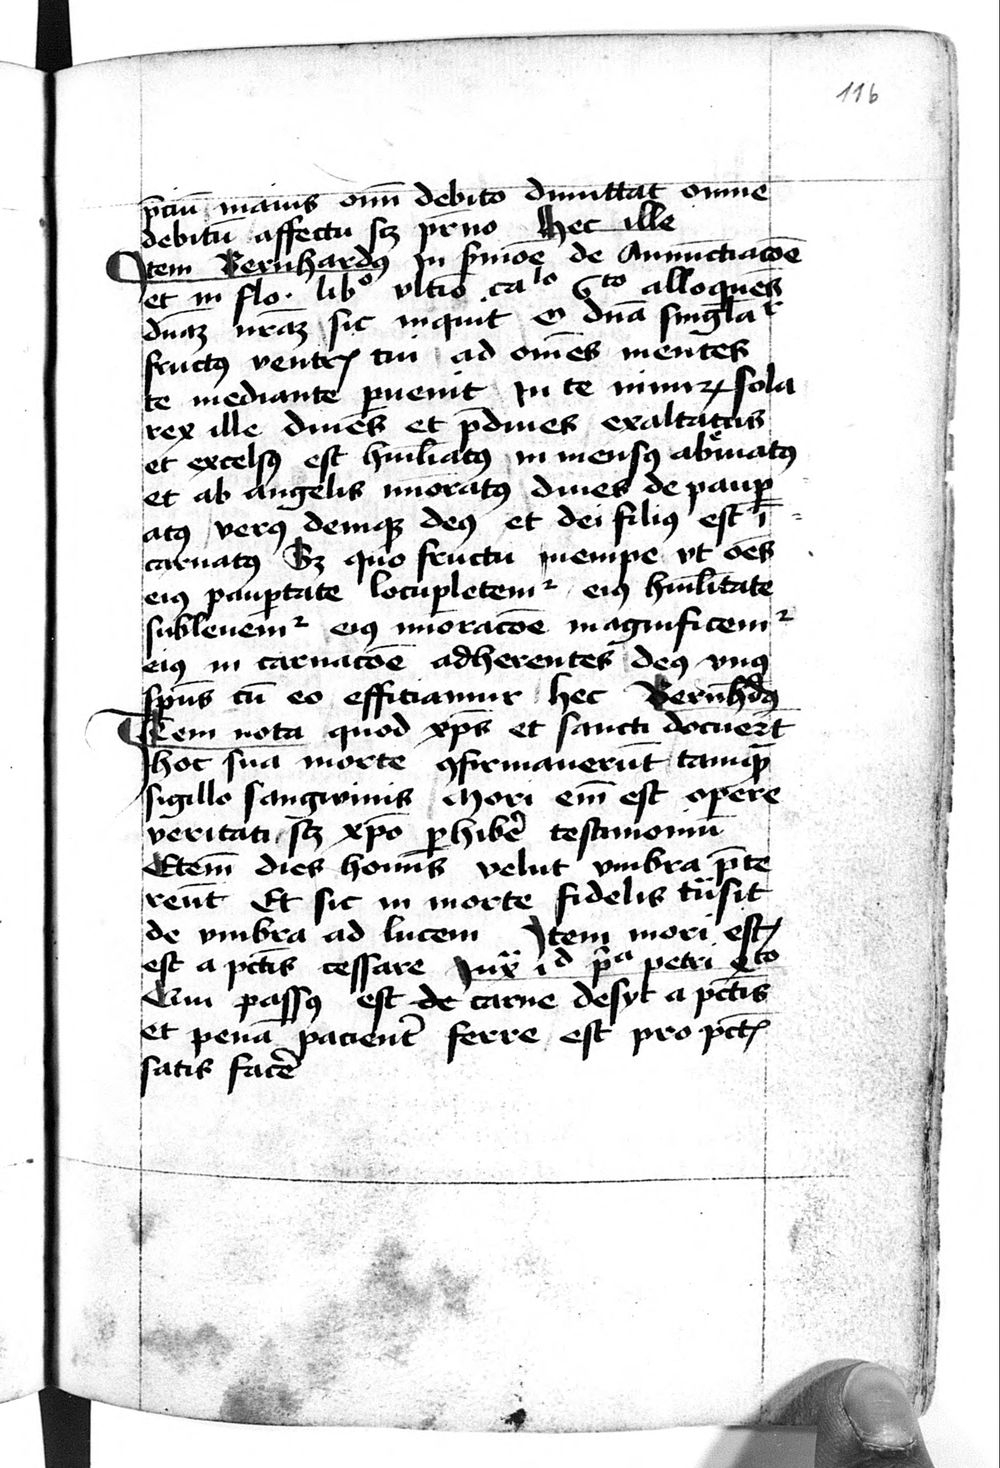 116
p̄ciū maius om̄i debito dimittat omne
debitū affectu sꝫ pr̄no Hec ille
Item Bernhardꝰ In s̄mōe de Annūctiacōe
et in flo· libº vltīo caˡᵒ 6ᵗᵒ alloquēs
dn̄aꝫ nr̄aꝫ sic inquit O dn̄a singl̄aʳ
fructꝰ ventrꝭ tui ad om̄es mentes
te mediante ꝑuenit In te nimirꝝ sola
rex ille diues et p̄diues exaltatus
et excelsꝰ est hūiliatꝰ in mensꝰ abᵇuiatꝰ
et ab angelis mīoratꝰ diues depaupꝑ
atꝰ verꝰ demiqꝫ deꝰ et dei filiꝰ est ī
carnatꝰ Sꝫ quo fructu nempe vt oēs
eiꝰ pauꝑtate locupletemʳ eiꝰ hūilitate
subleuemʳ eiꝰ mīoracōe magnificemʳ
eiꝰ in carnacōe adherentes deꝰ vnꝰ
sp̄us cū eo efficiamur hec Bernh̄dꝰ
Item nota quod xp̄s et sancti docuer̄t
hoc sua morte ꝯfirmauerūt tamqᷓ
sigillo sangwinis Mori em̄ est opere
veritati sꝫ xp̄o ꝑhibēr testimoniū
Etem̄ dies hom̄is velut vmbra p̄te
reūt Et sic in morte fidelis tūsit
de vmbra ad lucem Item mori estꝭ
est a pctīs cessare Iuxᷓ id pᷓᵃ petri 4ᵗᵒ
Qui passꝰ est de carne desyt a pctīs
et penā pacient̄ ferre est pro pctꝭ
satis facēr